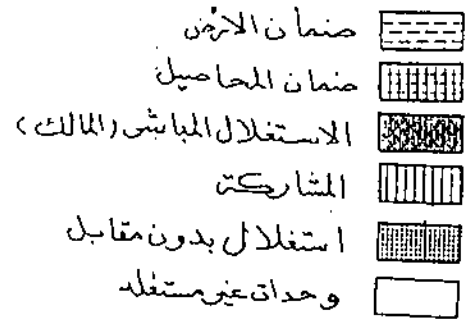 ضمان الارض
ضمان المحاصيل
الاستغلال المباشر (المالك)
المشاركة
استغلال بدون مقابل
وحدات غير مستغله